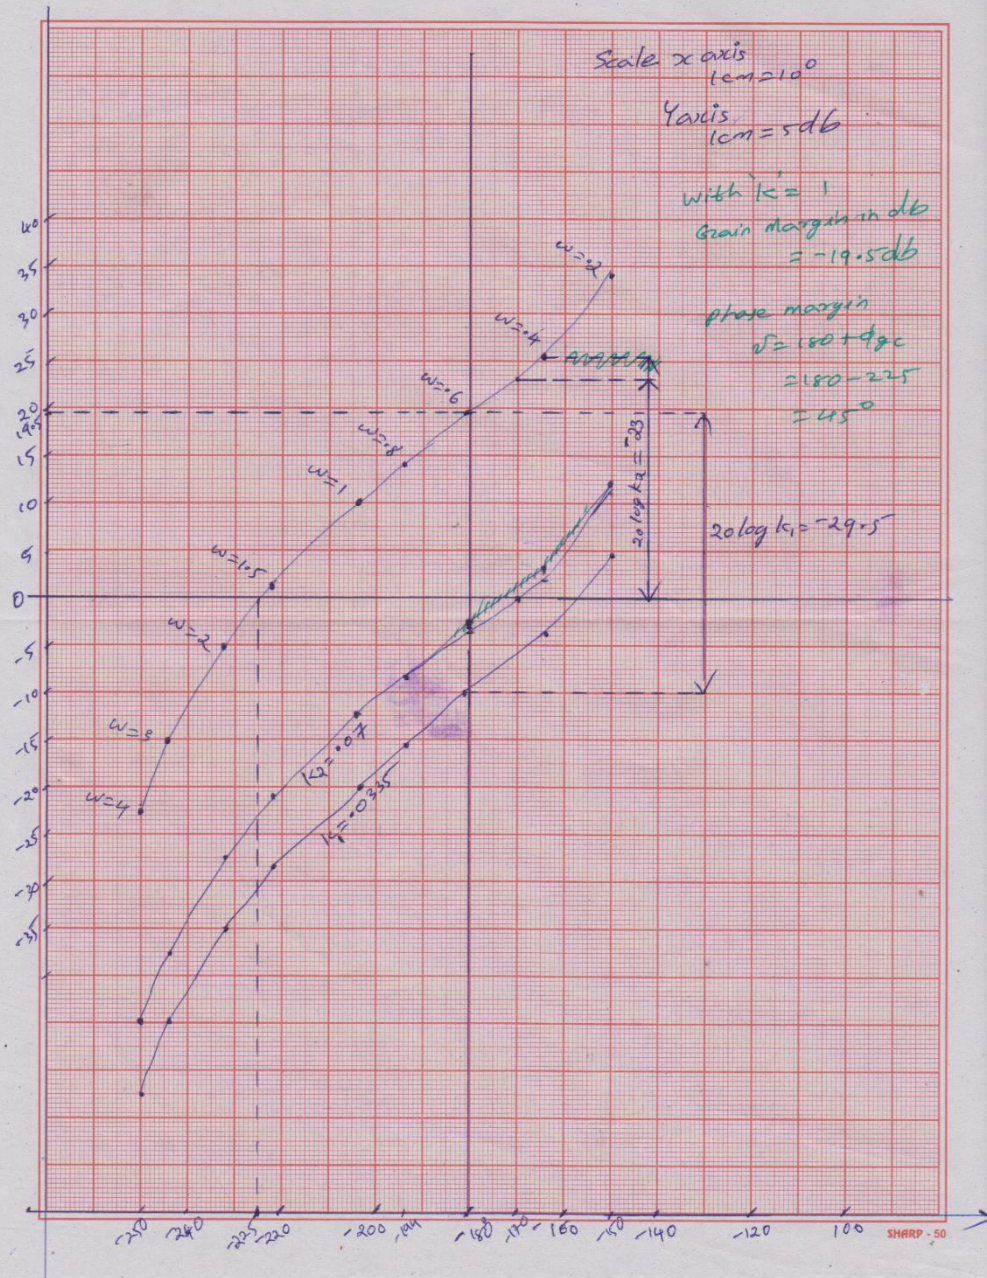 Scale x axis
1cm=10°
Yaxis
1cm=5db
with 'k'= 1
Gain Margin in db
= -19.5db
phase margin
γ=180+φgc
=180-225
=45°
40
35
30
25
20
19.5
15
10
5
0
-5
-10
-15
-20
-25
-30
-35
w=.2
w=.4
w=.6
w=.8
w=1
w=1.5
w=2
w=3
w=4
20 log k2 = -23
20 log k1 = -29.5
K2=.07
K1=.0335
-250 -240 -225 -220 -200 -194 -180 -170 -160 -150 -140 -120 100
SHARP - 50